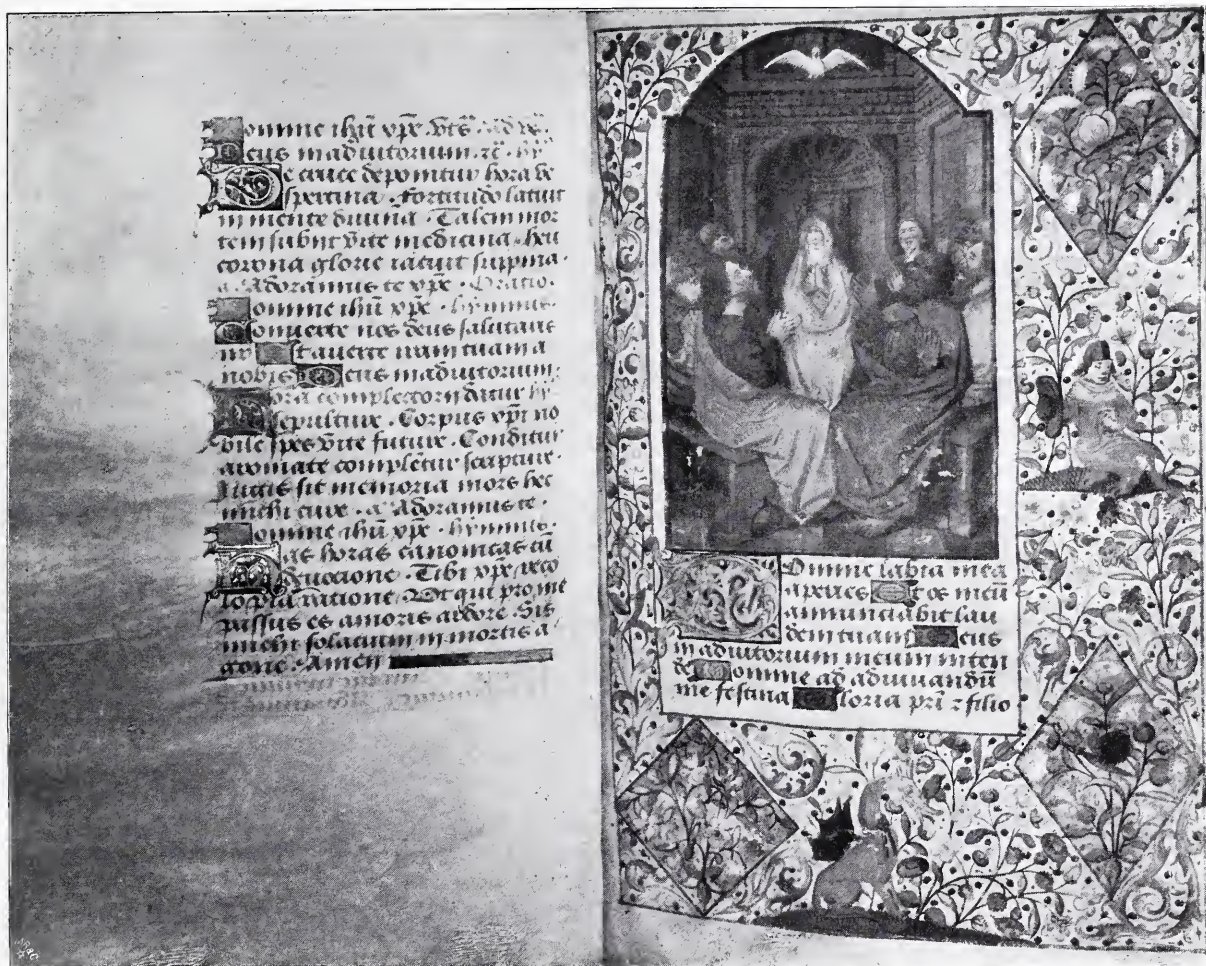 Domine ihu xpe. Vers. Ad
Deus in adiutorium. &c. hy
De cruce deponitur hora ve
spertina. Fortitudo latuit
in mente divina. Talem mor
tem subiit vite medicina. heu
corona glorie iacuit suppina.
a. Adoramus te xpe. Oratio.
Domine ihu xpe. hymnus.
Converte nos deus salutaris
nr Et averte iram tuam a
nobis Deus in adiutorium.
Hora completorii datur
sepulture. Corpus xpi no
bile spes vite future. Conditur
aromate complentur scripture.
Iugis sit memoria mors hec
michi cure. a. Adoramus te.
Domine ihu xpe. hymnus.
Has horas canonicas cu
devocione. Tibi xpe reco
lo pia ratione. Ut qui pro me
passus es amoris ardore. Sis
michi solacium in mortis a
gone. Amen
Domine labia mea
aperies Et os meu
annunciabit lau
dem tuam Deus
in adiutorium meum inten
de Domine ad adiuvandu
me festina Gloria pri & filio